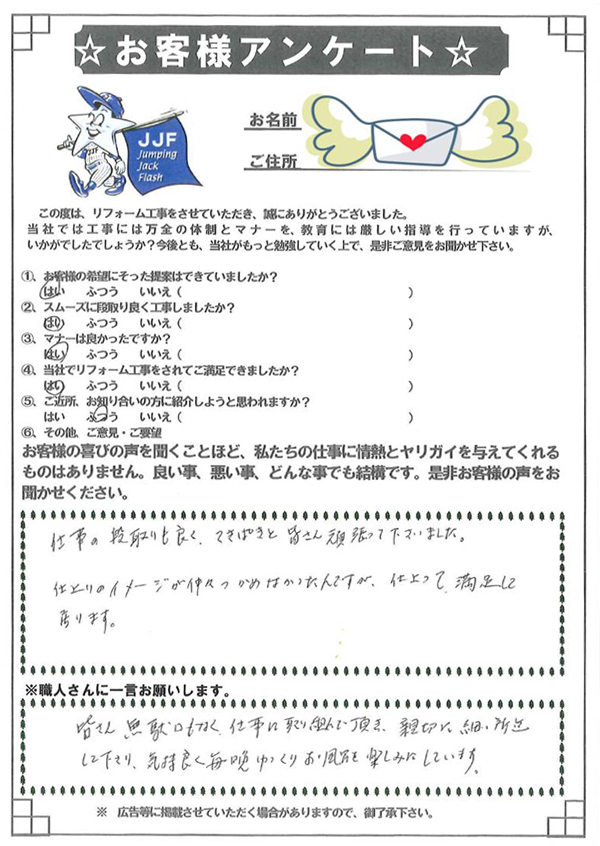 ☆お客様アンケート☆
JJF
Jumping
Jack
Flash
お名前
ご住所
この度は、リフォーム工事をさせていただき、誠にありがとうございました。
当社では工事には万全の体制とマナーを、教育には厳しい指導を行っていますが、
いかがでしたでしょうか？今後とも、当社がもっと勉強していく上で、是非ご意見をお聞かせ下さい。
①、お客様の希望にそった提案はできていましたか？
はい ふつう いいえ（ ）
②、スムーズに段取り良く工事しましたか？
はい ふつう いいえ（ ）
③、マナーは良かったですか？
はい ふつう いいえ（ ）
④、当社でリフォーム工事をされてご満足できましたか？
はい ふつう いいえ（ ）
⑤、ご近所、お知り合いの方に紹介しようと思われますか？
はい ふつう いいえ（ ）
⑥、その他、ご意見・ご要望
お客様の喜びの声を聞くことほど、私たちの仕事に情熱とヤリガイを与えてくれる
ものはありません。良い事、悪い事、どんな事でも結構です。是非お客様の声をお
聞かせください。
仕事の段取りも良く、てきぱきと皆さん頑張って下さいました。
仕上りのイメージが仲々つかめなかったんですが、仕上って、満足して
居ります。
※職人さんに一言お願いします。
皆さん無駄口もなく、仕事に取り組んで頂き、親切に細い所迄
して下さり、気持良く毎晩ゆっくりお風呂を楽しみにしています。
※ 広告等に掲載させていただく場合がありますので、御了承下さい。